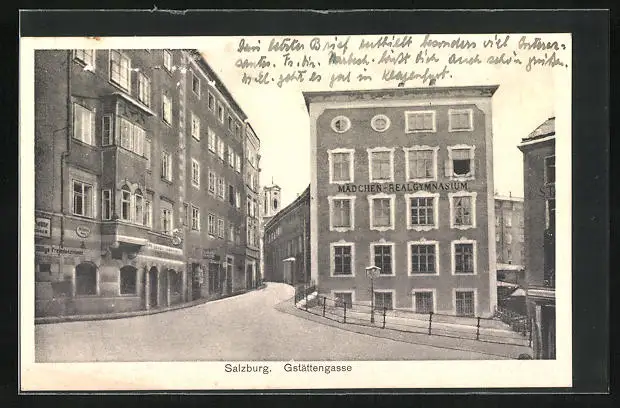 Dein letzter Brief enthielt besonders viel Interes-
santes. Fr. Dir. läßt dich auch schön grüßen.
Will. geht es gut in Klagenfurt.
MÄDCHEN-REALGYMNASIUM
Salzburg. Gstättengasse